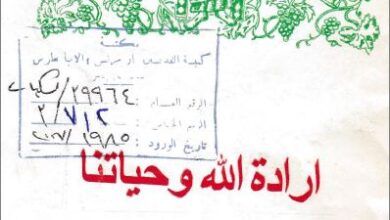 مكتبة
كنيسة القديسين مار مرقس والبابا بطرس
الرقم العام : ٢٩٩٦٤ /
الرقم الخاص : ٢ / ٧١٢
تاريخ الورود : ١٩٨٥ /
ارادة الله وحياتنا